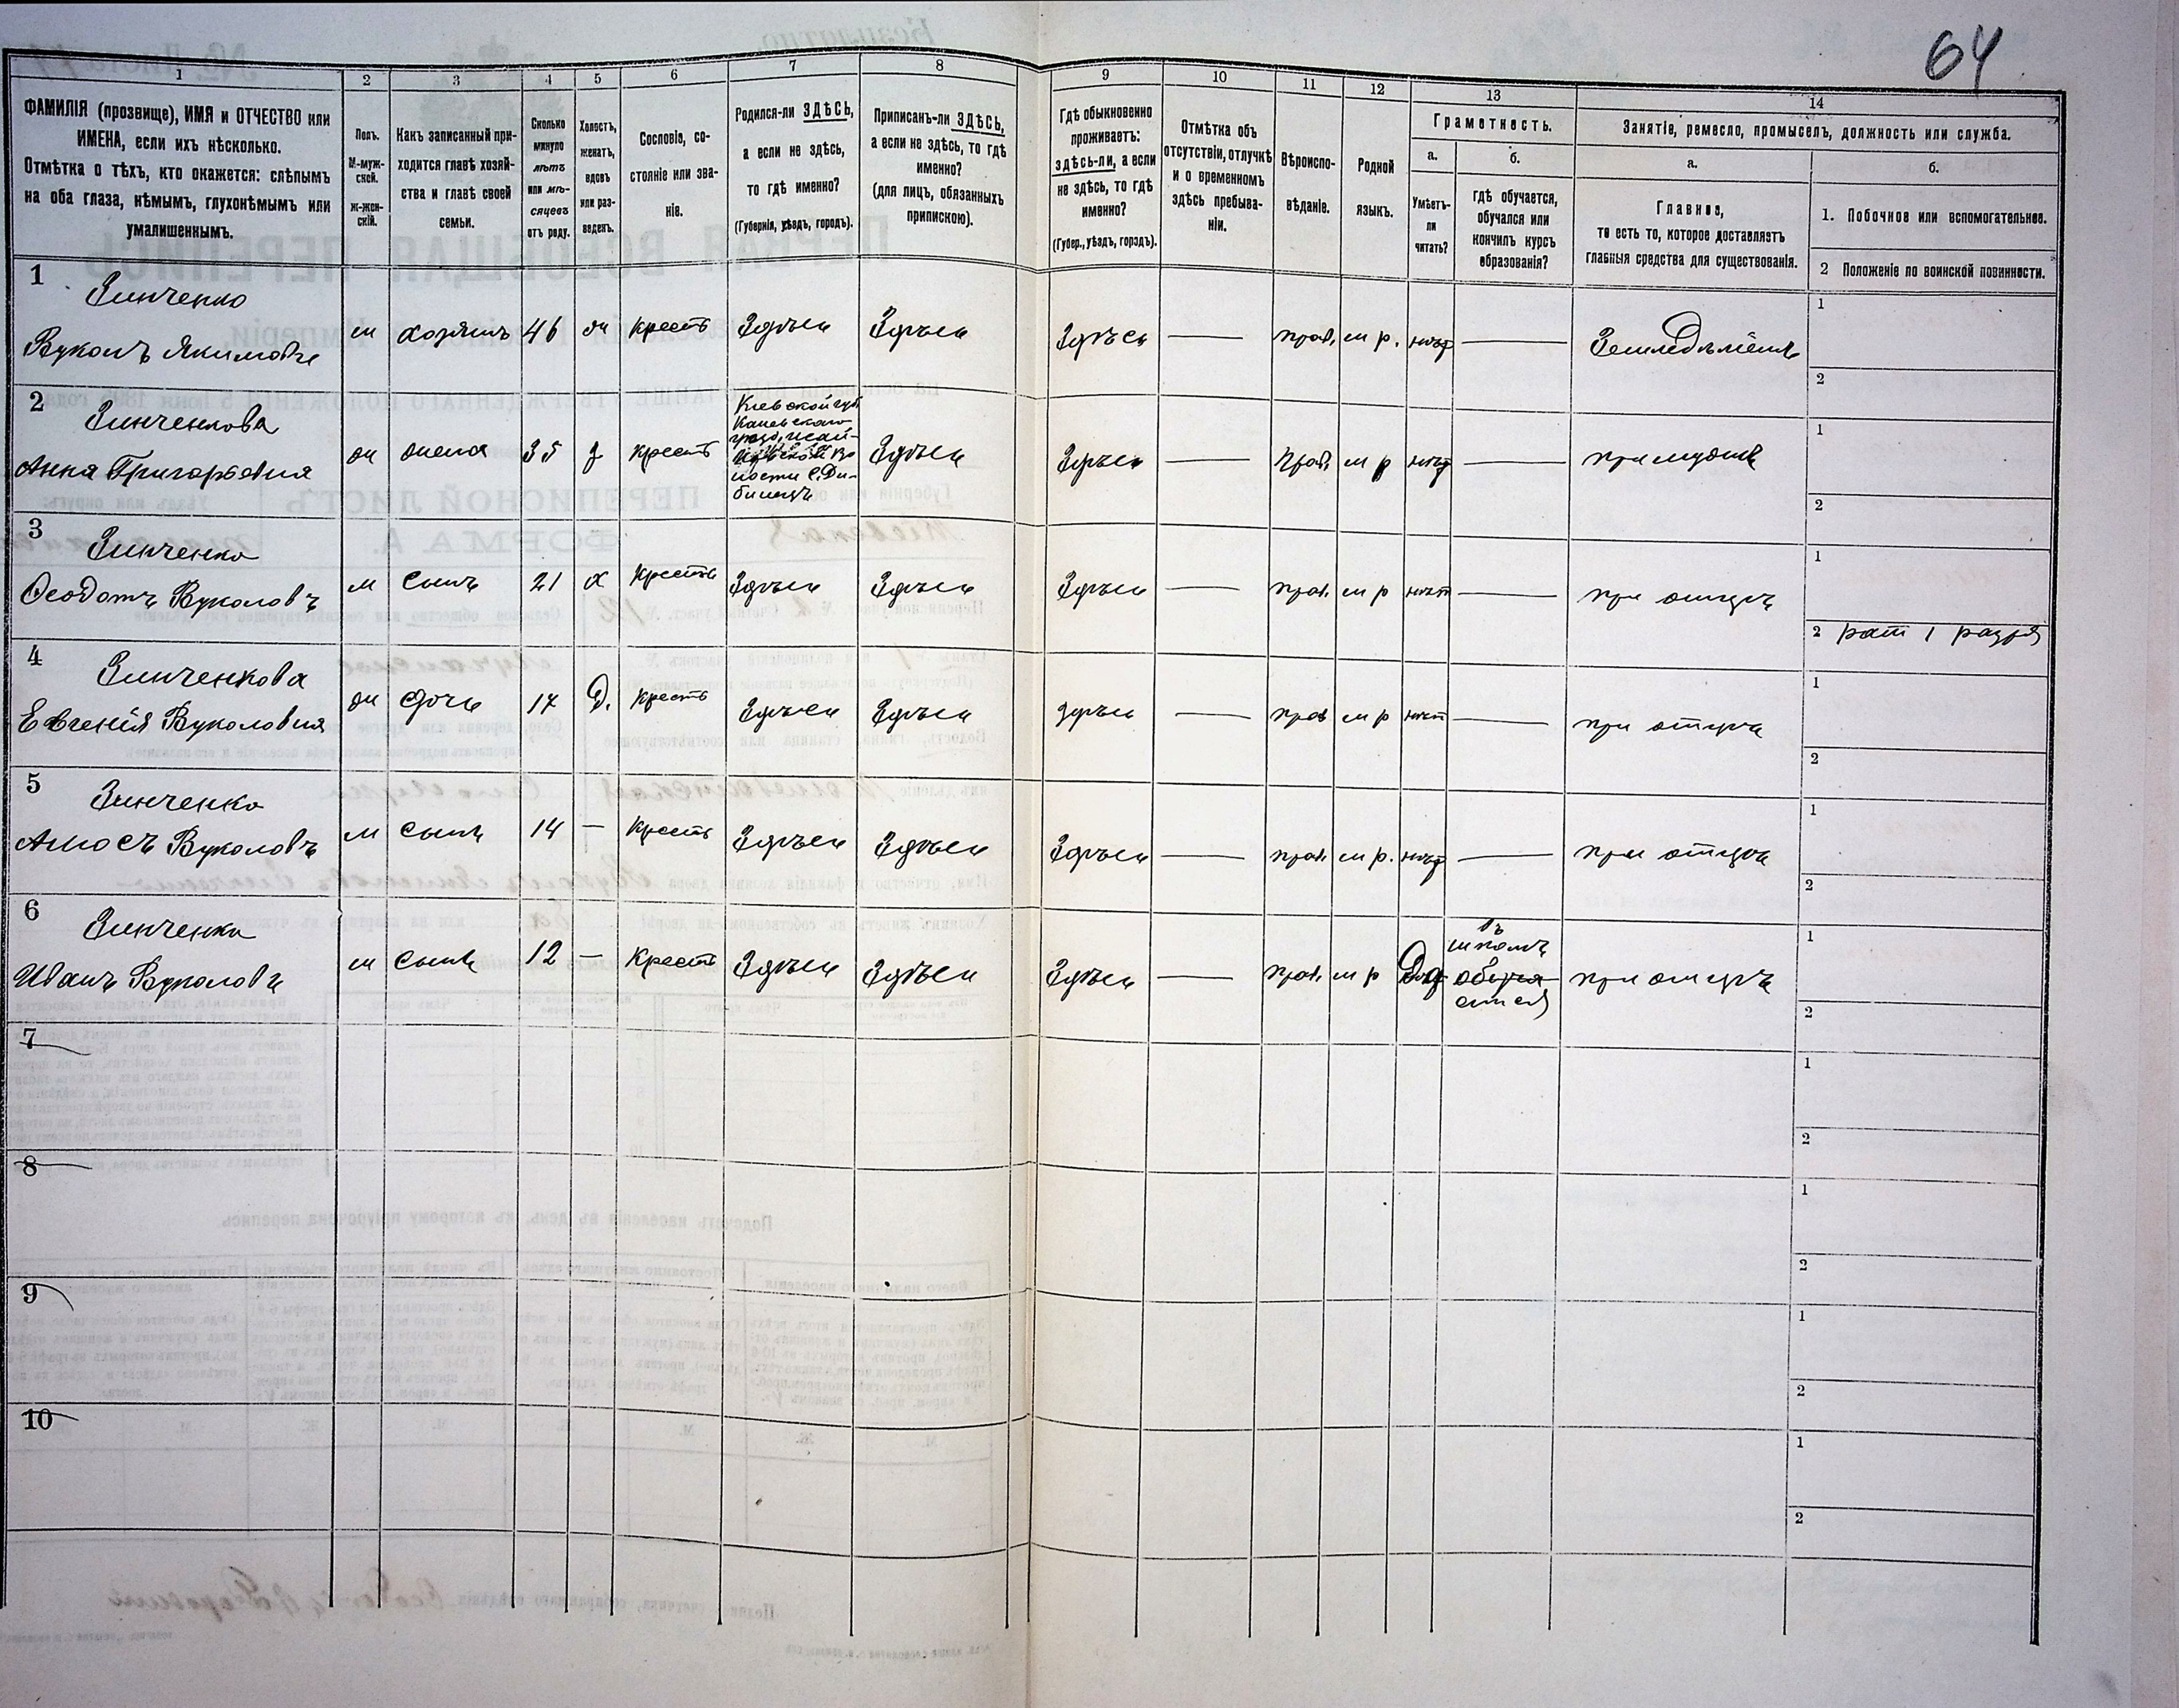 64
1
2
3
4
5
6
7
8
9
10
11
12
13
14
ФАМИЛІЯ (прозвище), ИМЯ и ОТЧЕСТВО или
ИМЕНА, если ихъ нѣсколько.
Отмѣтка о тѣхъ, кто окажется: слѣпымъ
на оба глаза, нѣмымъ, глухонѣмымъ или
умалишеннымъ.
Полъ.
М-муж-
ской.
Ж-жен-
скій.
Какъ записанный при-
ходится главѣ хозяй-
ства и главѣ своей
семьи.
Сколько
минуло
лѣтъ
или мѣ-
сяцевъ
отъ роду.
Холостъ,
женатъ,
вдовъ
или раз-
веденъ.
Сословіе, со-
стояніе или зва-
ніе.
Родился-ли ЗДѢСЬ,
а если не здѣсь,
то гдѣ именно?
(Губернія, уѣздъ, городъ).
Приписанъ-ли ЗДѢСЬ,
а если не здѣсь, то гдѣ
именно?
(для лицъ, обязанныхъ
припискою).
Гдѣ обыкновенно
проживаетъ:
здѣсь-ли, а если
не здѣсь, то гдѣ
именно?
(Губер., уѣздъ, городъ).
Отмѣтка объ
отсутствіи, отлучкѣ
и о временномъ
здѣсь пребыва-
ніи.
Вѣроиспо-
вѣданіе.
Родной
языкъ.
Грамотность.
а.
Умѣетъ-
ли
читать?
б.
гдѣ обучается,
обучался или
кончилъ курсъ
образованія?
Занятіе, ремесло, промыселъ, должность или служба.
а.
Главное,
то есть то, которое доставляетъ
главныя средства для существованія.
б.
1. Побочное или вспомогательное.
2 Положеніе по воинской повинности.
1
Зинченко
Вуколъ Якимовъ
м
хозяинъ
46
ж
крестъ
Здѣсь
Здѣсь
Здѣсь
—
прав.
м р.
нѣт
—
Земледѣліемъ
1
2
2
Зинченкова
Анна Григорьевна
ж
жена
35
з
крестъ
Кіевской губ
Каневскаго
С. Ди-
Здѣсь
Здѣсь
—
прав.
м р
нѣт
—
при мужѣ
1
2
3
Зинченко
Ѳеодотъ Вуколовъ
м
сынъ
21
х
крестъ
Здѣсь
Здѣсь
Здѣсь
—
прав.
м р
нѣт
—
при отцѣ
1
2 рат 1 разря
4
Зинченкова
Евгенія Вуколовна
ж
дочь
17
Д.
крестъ
Здѣсь
Здѣсь
здѣсь
—
прав
м р
нѣт
—
при отцѣ
1
2
5
Зинченко
Амосъ Вуколовъ
м
сынъ
14
—
крестъ
Здѣсь
Здѣсь
Здѣсь
—
прав.
м р.
нѣт
—
при отцѣ
1
2
6
Зинченко
Иванъ Вуколовъ
м
сынъ
12
—
крестъ
Здѣсь
Здѣсь
Здѣсь
—
прав.
м р
Да
въ
школѣ
обуча
ется
при отцѣ
1
2
7
1
2
8
1
2
9
1
2
10
1
2